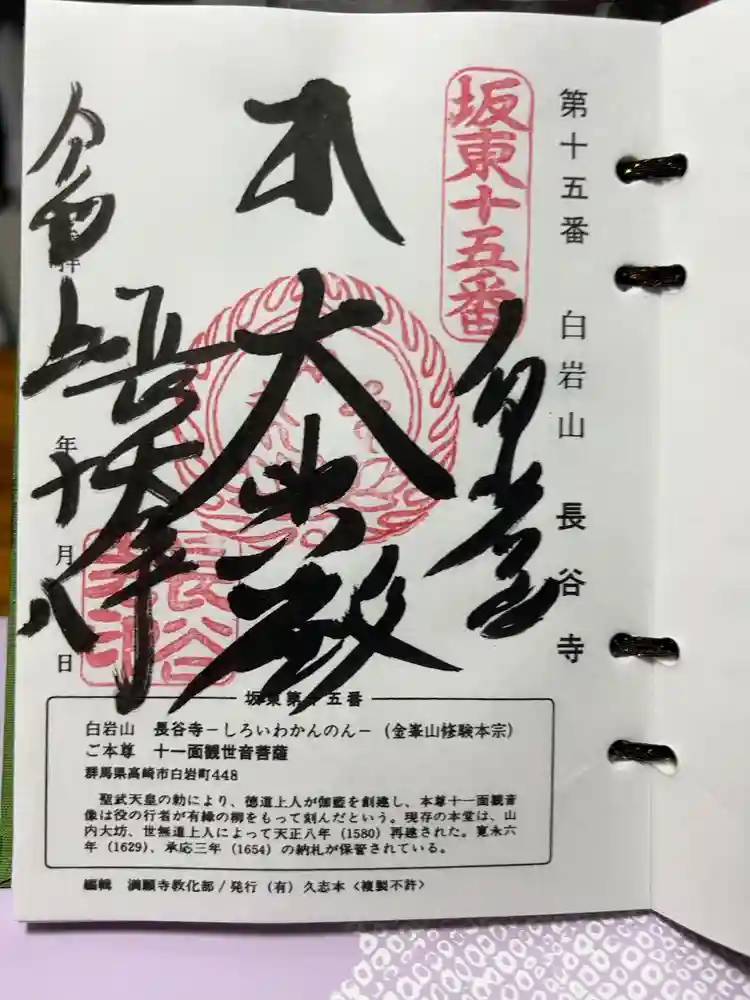 第十五番 白岩山 長谷寺
坂東十五番
大悲殿
年 月 日
坂東第十五番
白岩山 長谷寺－しろいわかんのん－（金峯山修験本宗）
ご本尊 十一面観世音菩薩
群馬県高崎市白岩町448
聖武天皇の勅により、徳道上人が伽藍を創建し、本尊十一面観音
像は役の行者が有縁の柳をもって刻んだという。現存の本堂は、山
内大坊、世無道上人によって天正八年（1580）再建された。寛永六
年（1629）、承応三年（1654）の納札が保管されている。
編輯 満願寺教化部/発行（有）久志本〈複製不許〉